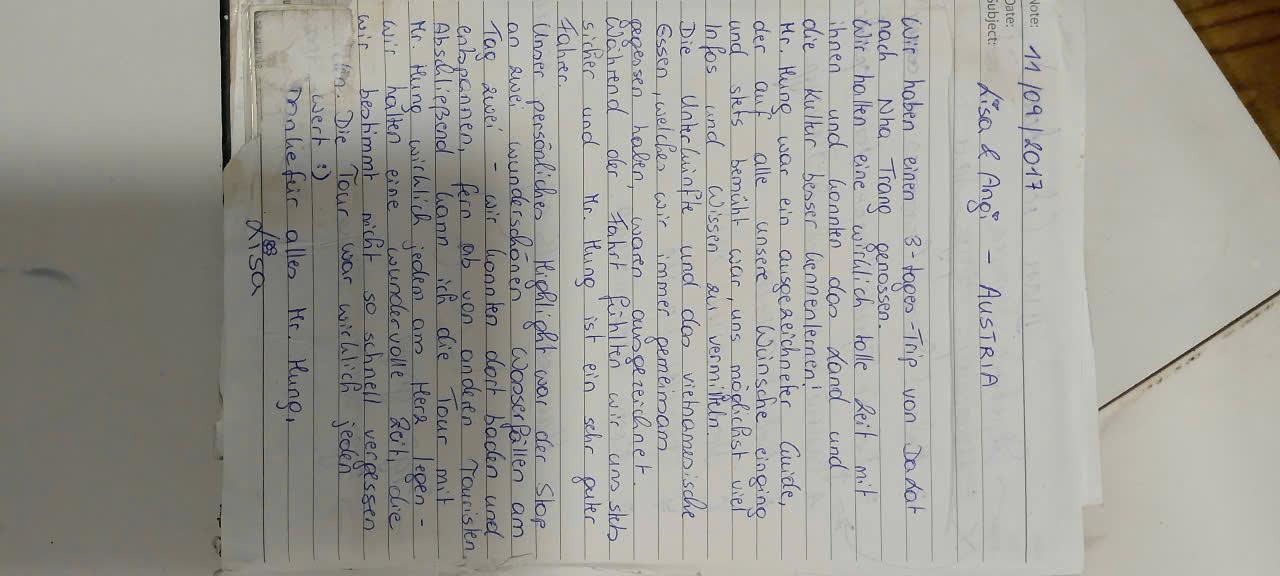 Note: 11/09/2017
Date:
Subject:
Lisa & Angi - AUSTRIA
Wir haben einen 3-tages-Trip von Dalat
nach Nha Trang genossen.
Wir hatten eine wirklich tolle Zeit mit
ihnen und konnten das Land und
die Kultur besser kennenlernen!
Mr. Hung war ein ausgezeichneter Guide,
der auf alle unsere Wünsche einging
und stets bemüht war, uns möglichst viel
Infos und Wissen zu vermitteln.
Die Unterkünfte und das vietnamesische
Essen, welches wir immer gemeinsam
gegessen haben, waren ausgezeichnet.
Während der Fahrt fühlten wir uns stets
sicher und Mr. Hung ist ein sehr guter
Fahrer.
Unser persönliches Highlight war der Stop
an zwei wunderschönen Wasserfällen am
Tag zwei - wir konnten dort baden und
entspannen, fern ab von anderen Touristen.
Abschließend kann ich die Tour mit
Mr. Hung wirklich jedem ans Herz legen -
wir hatten eine wundervolle Zeit, die
wir bestimmt nicht so schnell vergessen
Die Tour war wirklich jeden
wert :)
Danke für alles Mr. Hung,
Lisa